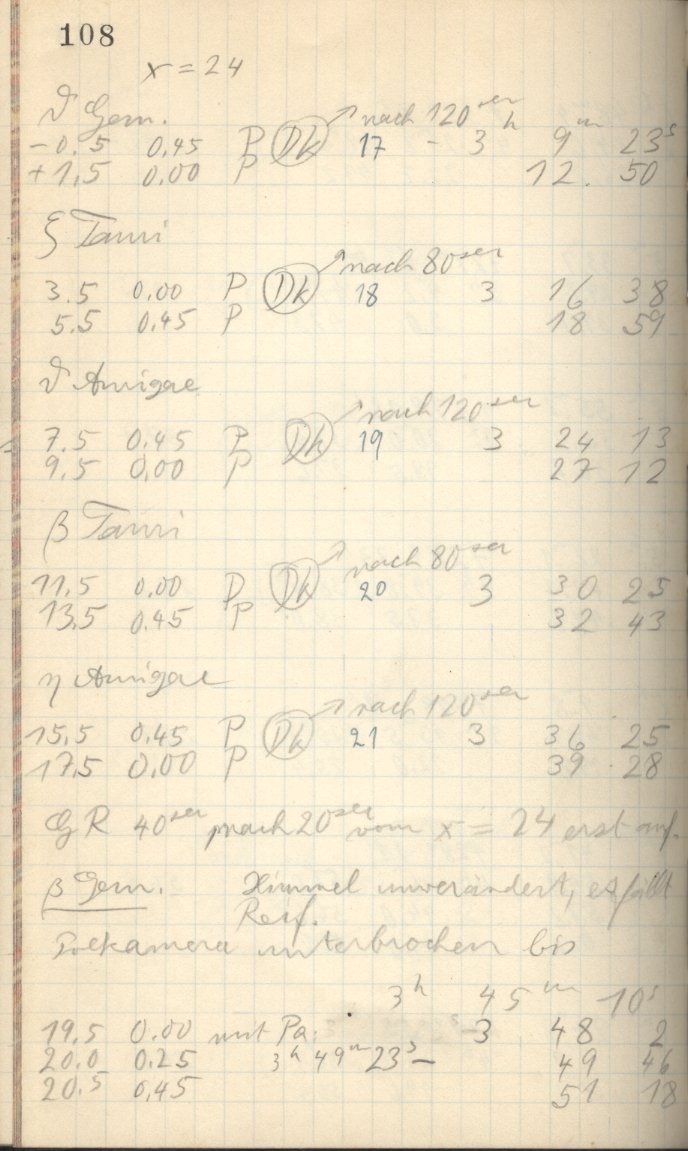 108
x = 24
ϑ Gem.
nach 120ser
-0.5 0,45 P Dk 17 - 3h 9m 23s
+1,5 0.00 P 12. 50
ξ Tauri
nach 80ser
3.5 0.00 P Dk 18 3 16 38
5.5 0.45 P 18 59
ϑ Aurigae
nach 120ser
7.5 0.45 P Dk 19 3 24 13
9.5 0.00 P 27 12
β Tauri
nach 80ser
11,5 0.00 P Dk 20 3 30 25
13,5 0.45 P 32 43
η Aurigae
nach 120ser
15.5 0.45 P Dk 21 3 36 25
17,5 0.00 P 39 28
GR 40ser nach 20ser vom x = 24 erst auf.
β Gem. Himmel unverändert, es fällt
Reif.
Polkamera unterbrochen bis
3h 45m 10s
19.5 0.00 mit Pa. 3 48 2
20.0 0.25 3h 49m 23s – 49 46
20.5 0,45 51 18